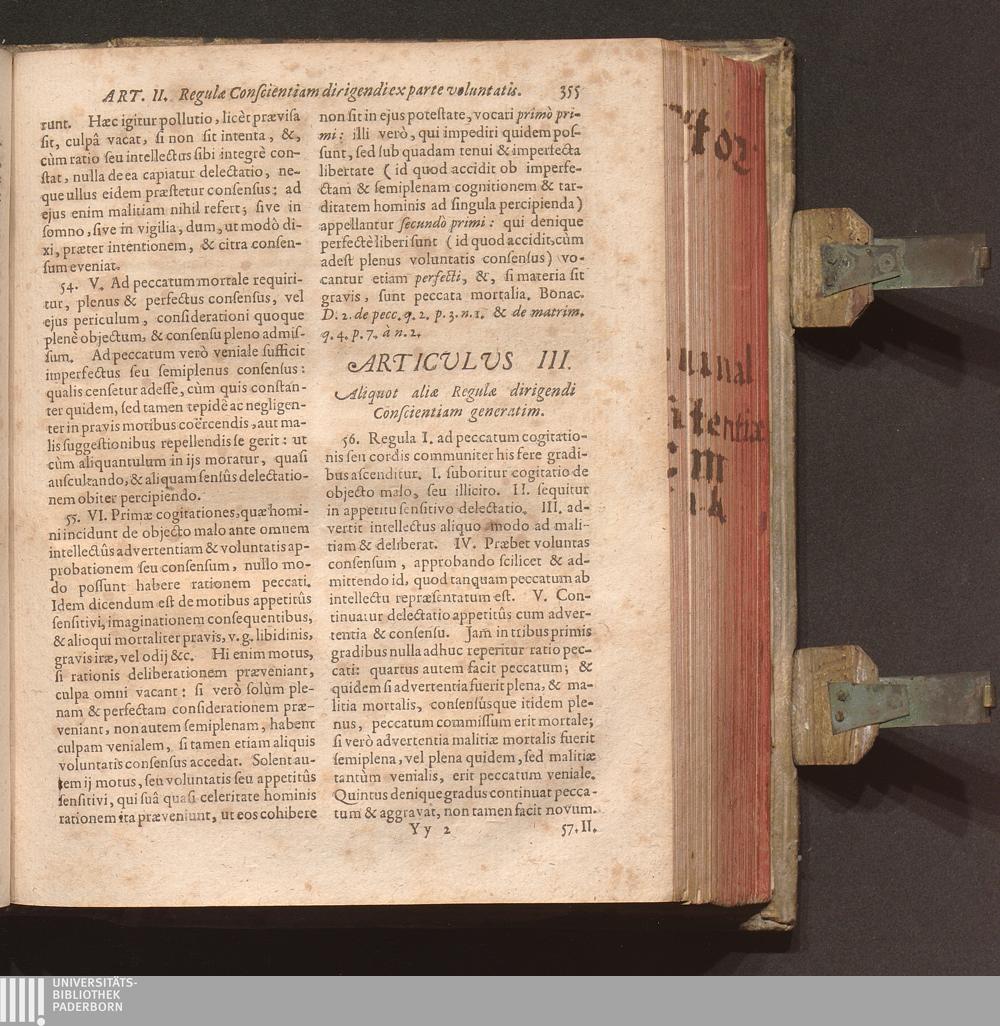 ART. II. Regulæ Conſcientiam dirigendi ex parte voluntatis. 355
runt. Hæc igitur pollutio, licèt præviſa
ſit, culpâ vacat, ſi non ſit intenta, &,
cùm ratio ſeu intellectus ſibi integrè con-
ſtat, nulla de ea capiatur delectatio, ne-
que ullus eidem præſtetur conſenſus: ad
ejus enim malitiam nihil refert; ſive in
ſomno, ſive in vigilia, dum, ut modò di-
xi, præter intentionem, & citra conſen-
ſum eveniat.
54. V. Ad peccatum mortale requiri-
tur, plenus & perfectus conſenſus, vel
ejus periculum, conſiderationi quoque
plenè objectum, & conſenſu pleno admiſ-
ſum. Ad peccatum verò veniale ſufficit
imperfectus ſeu ſemiplenus conſenſus:
qualis cenſetur adeſſe, cùm quis conſtan-
ter quidem, ſed tamen tepidè ac negligen-
ter in pravis motibus coërcendis, aut ma-
lis ſuggeſtionibus repellendis ſe gerit: ut
cùm aliquantulum in ijs moratur, quaſi
auſcultando, & aliquam ſenſûs delectatio-
nem obiter percipiendo.
55. VI. Primæ cogitationes, quæ homi-
ni incidunt de objecto malo ante omnem
intellectûs advertentiam & voluntatis ap-
probationem ſeu conſenſum, nullo mo-
do poſſunt habere rationem peccati.
Idem dicendum eſt de motibus appetitûs
ſenſitivi, imaginationem conſequentibus,
& alioqui mortaliter pravis, v. g. libidinis,
gravis iræ, vel odij &c. Hi enim motus,
ſi rationis deliberationem præveniant,
culpa omni vacant: ſi verò ſolùm ple-
nam & perfectam conſiderationem præ-
veniant, non autem ſemiplenam, habent
culpam venialem, ſi tamen etiam aliquis
voluntatis conſensus accedat. Solent au-
tem ij motus, ſeu voluntatis ſeu appetitûs
ſenſitivi, qui ſuâ quaſi celeritate hominis
rationem ita præveniunt, ut eos cohibere
non ſit in ejus poteſtate, vocari primò pri-
mi: illi verò, qui impediri quidem poſ-
ſunt, ſed ſub quadam tenui & imperfecta
libertate (id quod accidit ob imperfe-
ctam & ſemiplenam cognitionem & tar-
ditatem hominis ad ſingula percipienda)
appellantur ſecundò primi: qui denique
perfectè liberi ſunt (id quod accidit, cùm
adeſt plenus voluntatis conſenſus) vo-
cantur etiam perfecti, &, ſi materia ſit
gravis, ſunt peccata mortalia. Bonac.
D. 2. de pecc. q. 2. p. 3. n. 1. & de matrim.
q. 4. p. 7. à n. 2.
ARTICULUS III.
Aliquot aliæ Regulæ dirigendi
Conſcientiam generatim.
56. Regula I. ad peccatum cogitatio-
nis ſeu cordis communiter his fere gradi-
bus aſcenditur. I. ſuboritur cogitatio de
objecto malo, ſeu illicito. II. ſequitur
in appetitu ſenſitivo delectatio. III. ad-
vertit intellectus aliquo modo ad mali-
tiam & deliberat. IV. Præbet voluntas
conſenſum, approbando ſcilicet & ad-
mittendo id, quod tanquam peccatum ab
intellectu repræſentatum eſt. V. Con-
tinuatur delectatio appetitûs cum adver-
tentia & conſenſu. Jam in tribus primis
gradibus nulla adhuc reperitur ratio pec-
cati: quartus autem facit peccatum; &
quidem ſi advertentia fuerit plena, & ma-
litia mortalis, conſenſúsque itidem ple-
nus, peccatum commiſſum erit mortale;
ſi verò advertentia malitiæ mortalis fuerit
ſemiplena, vel plena quidem, ſed malitiæ
tantùm venialis, erit peccatum veniale.
Quintus denique gradus continuat pecca-
tum & aggravat, non tamen facit novum.
Yy 2 57. II.
UNIVERSITÄTS-
BIBLIOTHEK
PADERBORN